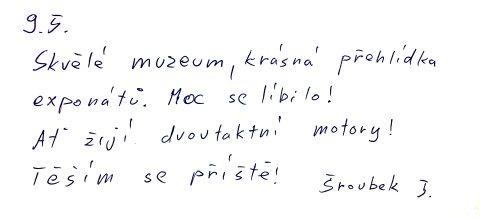 9. 5.
Skvělé muzeum, krásná přehlídka
exponátů. Moc se líbilo!
Ať žijí dvoutaktní motory!
Těším se příště! Šroubek J.